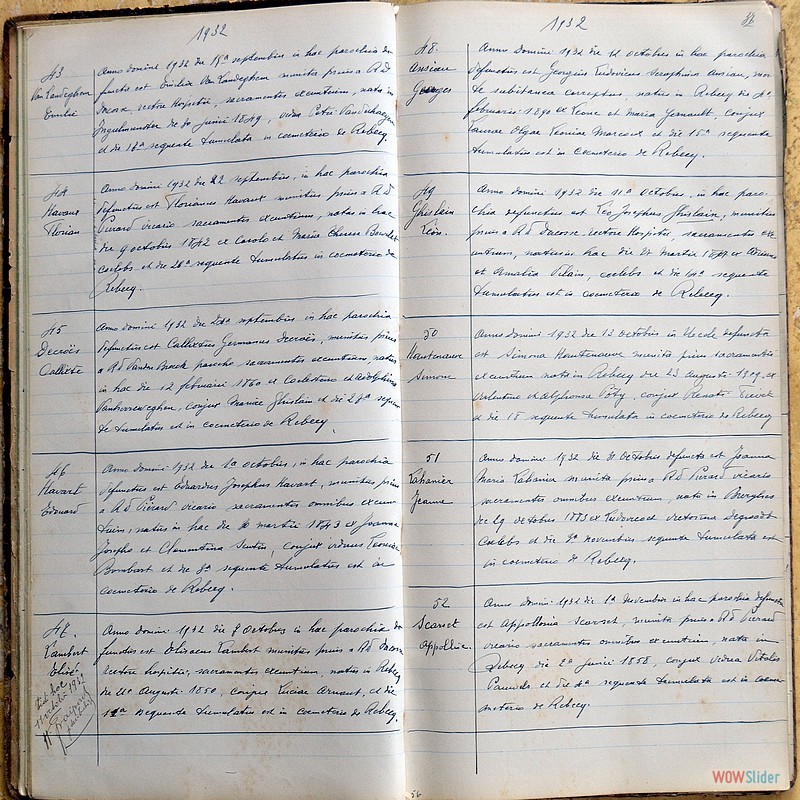 1932
43
Van Landeghem
Emilie
Anno domini 1932 die 15a septembris in hac parochia de
functa est Emilia Van Landeghem munita prius a R.D.
rectore hospitii, sacramentis exeuntium, nata in
Ingelmunster die 10 junii 1849, vidua Petri
et die 18a sequente tumulata in coemeterio de Rebecq.
44
Havaux
Florian
Anno domini 1932 die 22 septembris, in hac parochia
defunctus est Florianus Havaux munitus prius a R D
Pierard vicario sacramentis exeuntium, natus in hac
die 9 octobris 1842 ex Carolo et Maria Theresa
Coelebs et die 26a sequente tumulatus in coemeterio de
Rebecq.
45
Decroës
Callixte
Anno domini 1932 die septembris in hac parochia
defunctus est Callixtus Germanus Decroës, munitus prius
a RD parocho sacramentis exeuntium natus
in hac die 12 februarii 1860 ex Coelestino et Adolphina
conjux Mariae Ghislain et die 27a sequen
te tumulatus est in coemeterio de Rebecq.
46
Havart
Edouard
Anno domini 1932 die 1a octobris, in hac parochia
defunctus est Eduardus Josephus Havart, munitus prius
a RD Pierard vicario, sacramentis omnibus exeun
tium, natus in hac die 10 martii 1843 ex Joanne
Josepho et Clementina conjux viduus Leoniae
Bombart et die 3a sequente tumulatus est in
coemeterio de Rebecq.
47.
Lambert
Elisé
Anno domini 1932 die 8 Octobris in hac parochia de
functus est Elisaeus Lambert munitus prius a RD Dacosse
rectore hospitii, sacramentis exeuntium, natus in Rebecq
die 11a Augusti 1850, conjux Luciae Arnaut, et die
11a sequente tumulatus est in coemeterio de Rebecq.
1932
48.
Ansiau
Georges
Anno domini 1932 die 12 octobris in hac parochia
defunctus est Georgius Ludovicus Seraphinus Ansiau, mor
te subitanea correptus, natus in Rebecq die 4a
februarii 1890 ex Leone et Maria conjux
Laurae Olgae Leoniae Marcoux et die 15a sequente
tumulatus est in coemeterio de Rebecq.
49
Ghislain
Léon.
Anno domini 1932 die 11a Octobris, in hac paro-
chia defunctus est Leo Josephus Ghislain, munitus
prius a Rd Dacosse, rectore Hospitii, sacramentis exe
untium, natus in hac die 21 Martii 1847 ex
et Amalia Vilain, coelebs et die 14a sequente
tumulatus est in coemeterio de Rebecq.
50
Hautenauve
Simone
Anno domini 1932 die 13 octobris in Uccle defuncta
est Simona Hautenauve munita prius sacramentis
exeuntium nata in Rebecq die 23 Augusti 1909 ex
Valentino et Alphonsa Poty, conjux Renati
et die 15 sequente tumulata in coemeterio de Rebecq
51
Lahanier
Jeanne
Anno domini 1932 die 31 Octobris defuncta est Joanna
Maria Lahanier munita prius a Rd Pierard vicario
sacramentis omnibus exeuntium, nata in Bierghes
die 29 octobris 1883 ex Ludovico et Victorina
Coelebs et die 3a novembris sequente tumulata est
in coemeterio de Rebecq.
52
Scaret
Appolline.
Anno domini 1932 die 1a Novembris in hac parochia defuncta
est Appollonia Scaret, munita prius a Rd Pierard
vicario sacramentis omnibus exeuntium, nata in
Rebecq die 2a Junii 1858, conjux vidua Vitalis
Pauwels et die 4a sequente tumulata est in coeme
meterio de Rebecq.
56
WOWSlider